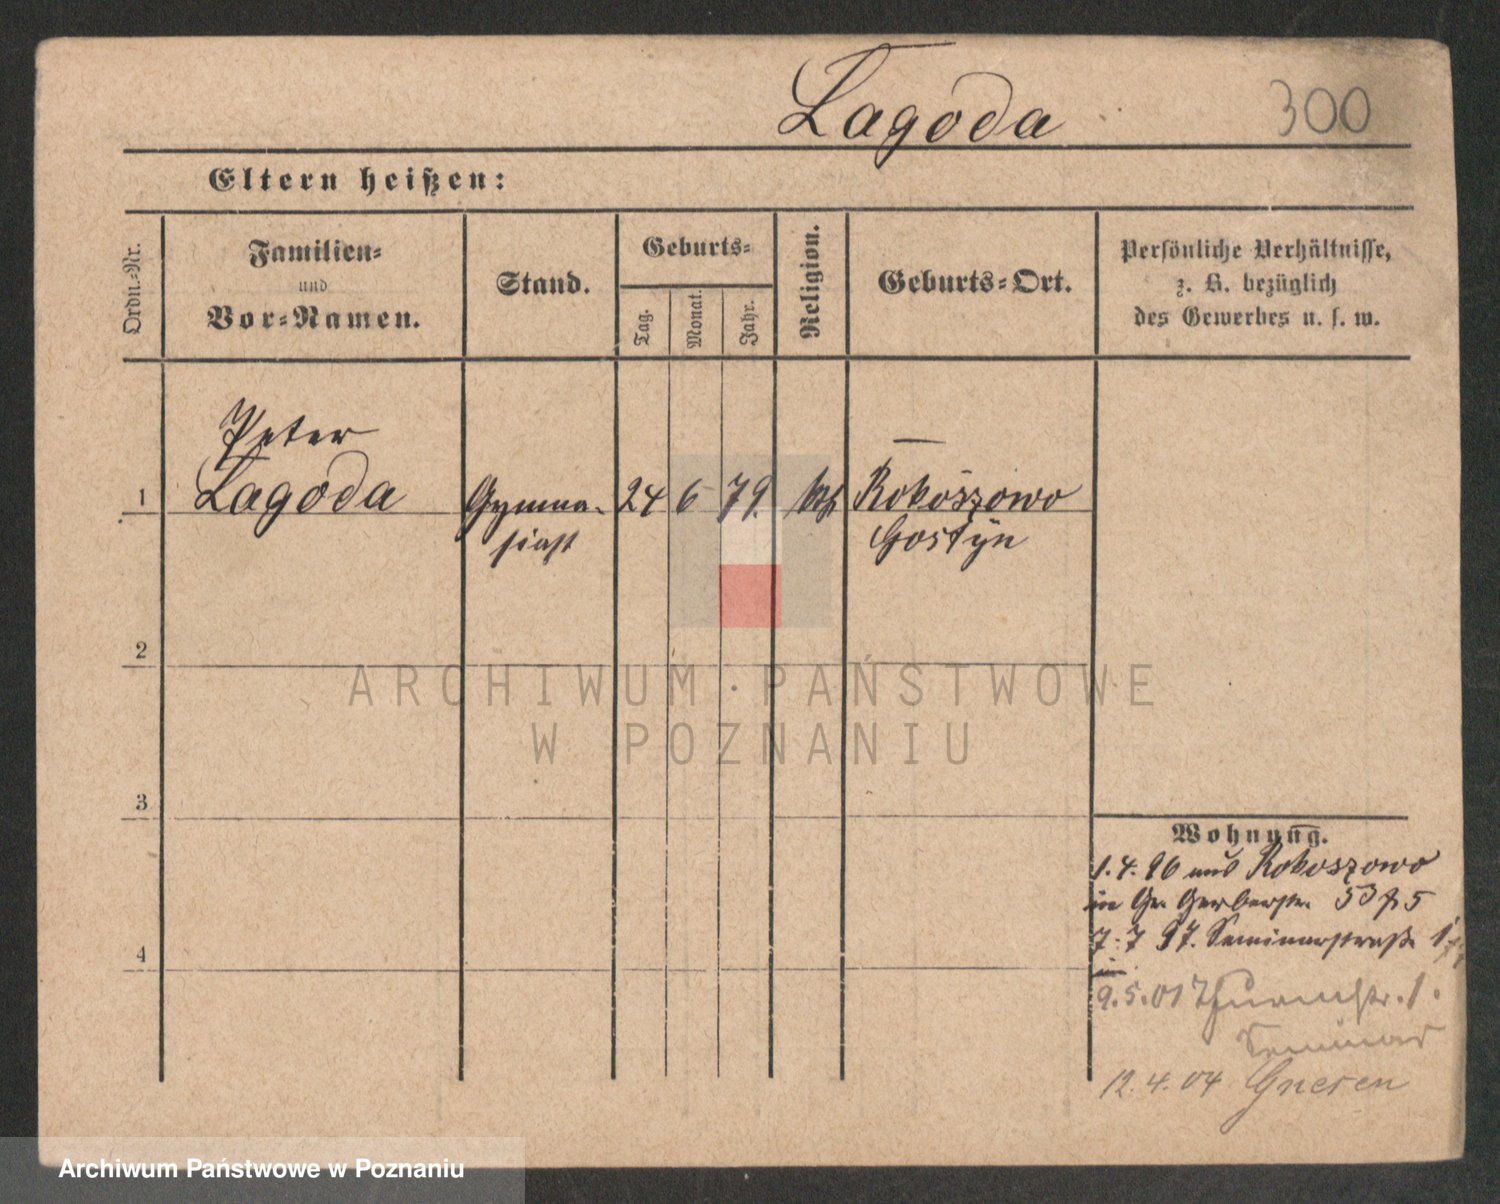 Lagoda 300
Eltern heißen:
Ordn.-Nr.
Familien-
und
Vor-Namen.
Stand.
Geburts-
Tag.
Monat.
Jahr.
Religion.
Geburts-Ort.
Persönliche Verhältnisse,
z. B. bezüglich
des Gewerbes u. s. w.
Peter
1 Lagoda Gymna- 24 6 79. kth Rokoszowo
siast Gostyn
2
ARCHIWUM·PAŃSTWOWE
W POZNANIU
3
Wohnung.
1.4.96 aus Rokoszowo
in Gr. Gerberstr. 53
7.7 97. Seminarstraße
9.5.01 Thurmstr. 1.
Seminar
4
12.4.04 Gnesen
Archiwum Państwowe w Poznaniu